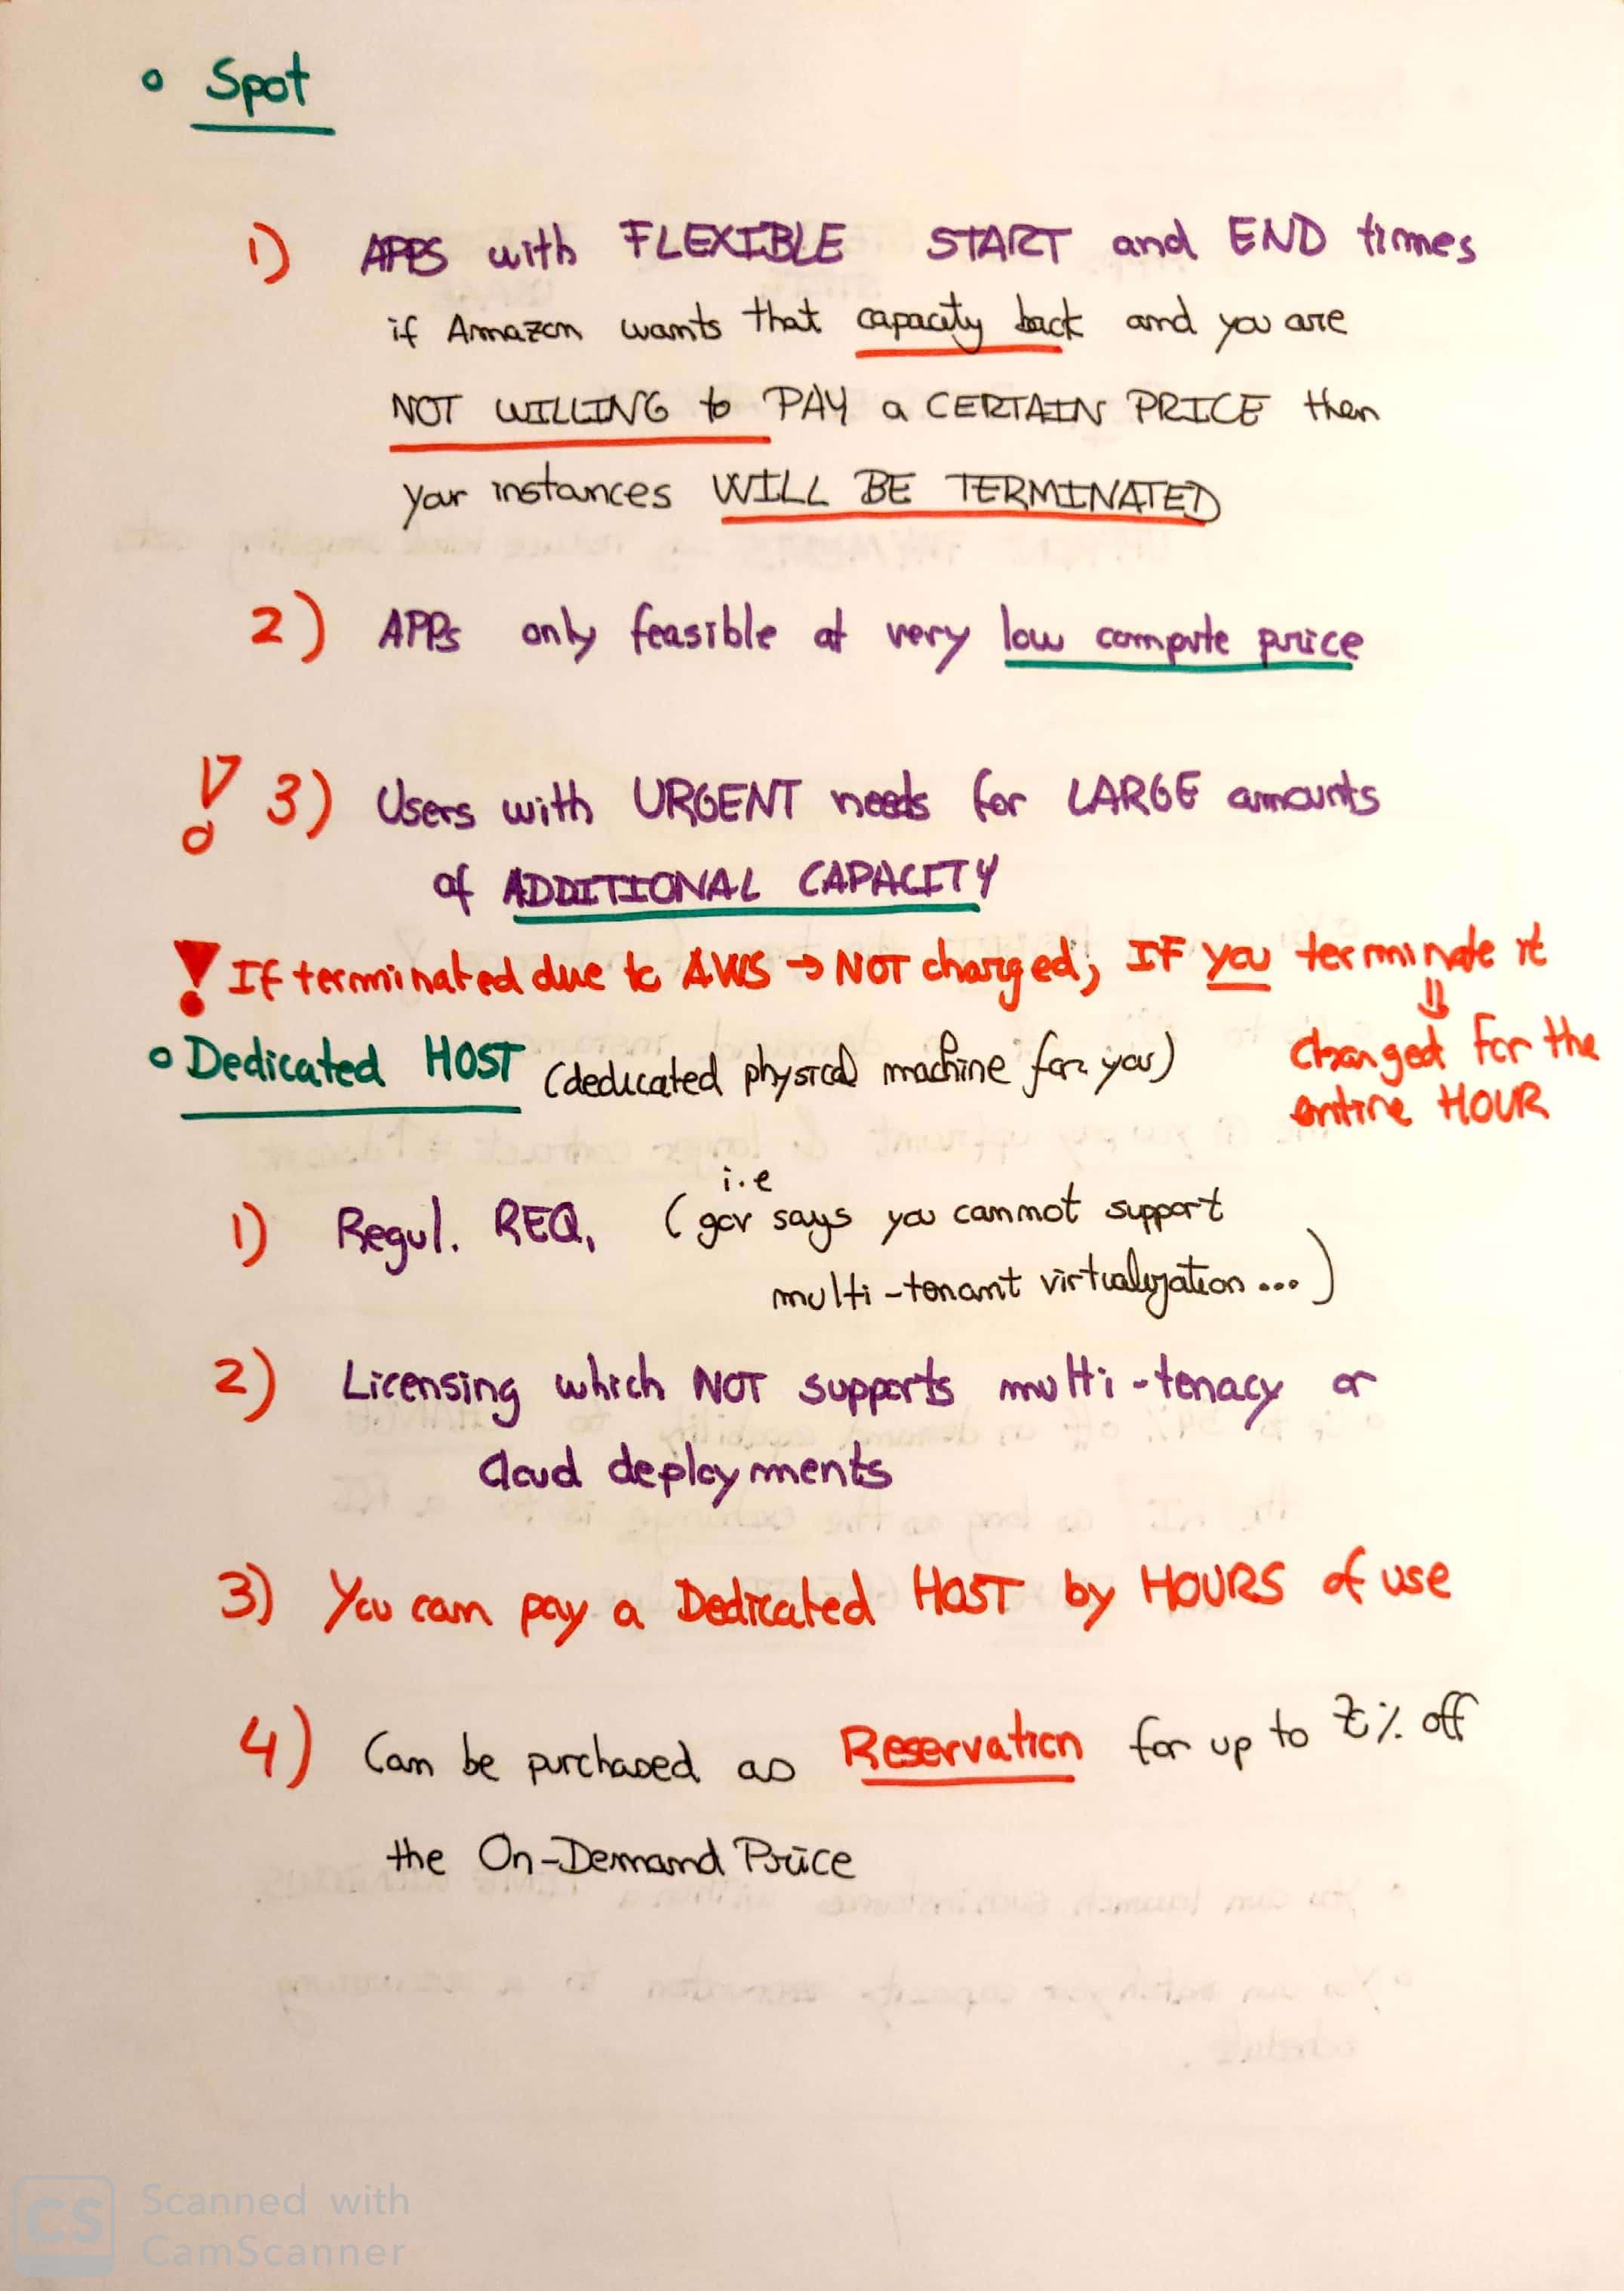 Spot
1) APPS with FLEXIBLE START and END times
if Amazon wants that capacity back and you are
NOT WILLING to PAY a CERTAIN PRICE then
your instances WILL BE TERMINATED
2) APPs only feasible at very low compute price
! 3) Users with URGENT needs for LARGE amounts
of ADDITIONAL CAPACITY
! If terminated due to AWS → NOT charged; IF you terminate it
⇓
charged for the
entire HOUR
Dedicated HOST (dedicated physical machine for you)
1) Regul. REQ, (i.e gov says you cannot support
multi-tenant virtualization ...)
2) Licensing which NOT supports multi-tenacy or
Cloud deployments
3) You can pay a Dedicated HOST by HOURS of use
4) Can be purchased as Reservation for up to % off
the On-Demand Price
CS Scanned with
CamScanner